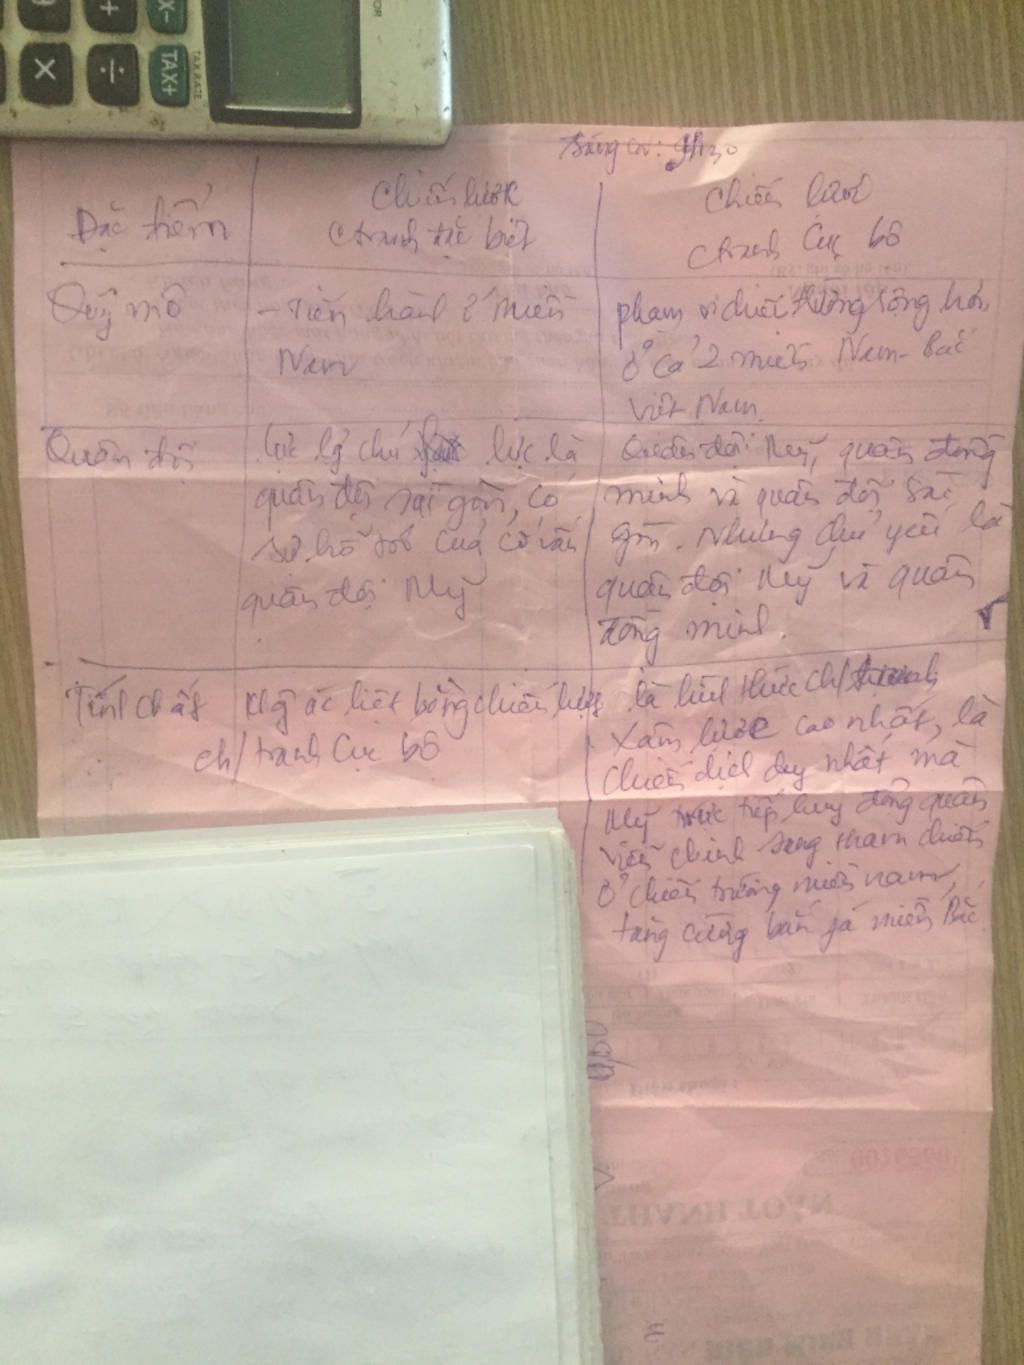 TAX+
TAX RATE
÷
×
+
Đặc điểm
Chiến lược
ctranh đặc biệt
Chiến lược
ctranh Cục bộ
Quy mô
- Tiến hành ở miền
Nam
phạm vi chiến trường rộng hơn
ở cả 2 miền Nam - Bắc
Việt Nam.
Quân đội
lực lg chủ lực là
quân đội sài gòn, có
sự hỗ trợ của cố vấn
quân đội Mỹ
Quân đội Mỹ, quân đồng
minh và quân đội Sài
gòn. Nhưng chủ yếu là
quân đội Mỹ và quân
đồng minh.
Tính chất
Khg ác liệt bằng chiến lược
ch/tranh Cục bộ
là hình thức ch/tranh
xâm lược cao nhất, là
chiến dịch duy nhất mà
Mỹ trực tiếp huy động quân
viễn chinh sang tham chiến
ở chiến trường miền nam,
tăng cường bắn phá miền Bắc